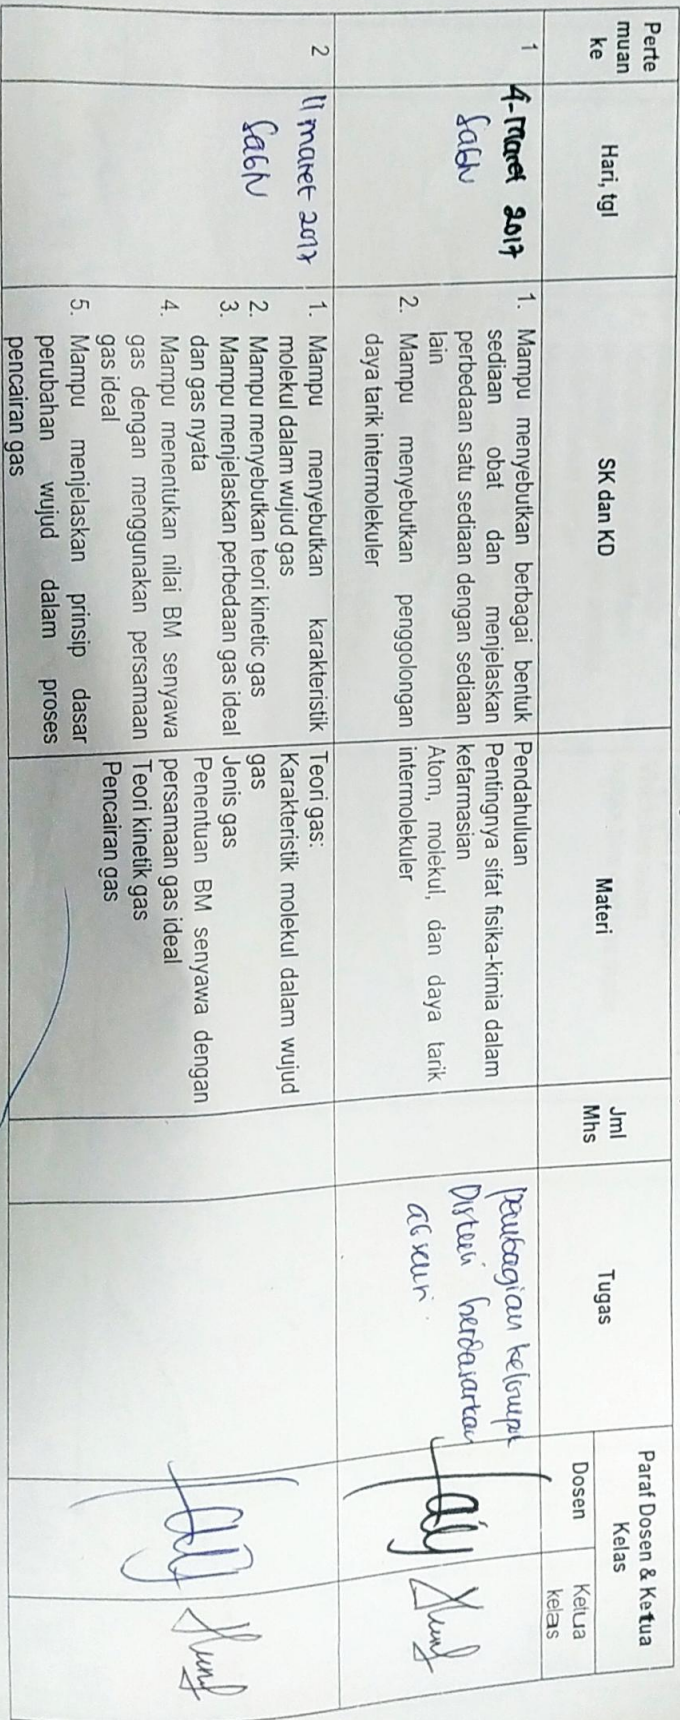 Perte
muan
ke
Hari, tgl
SK dan KD
Materi
Jml
Mhs
Tugas
Paraf Dosen & Ketua
Kelas
Dosen
Ketua
kelas
1
4-Maret 2017
Sabtu
1. Mampu menyebutkan berbagai bentuk
sediaan obat dan menjelaskan
perbedaan satu sediaan dengan sediaan
lain
2. Mampu menyebutkan penggolongan
daya tarik intermolekuler
Pendahuluan
Pentingnya sifat fisika-kimia dalam
kefarmasian
Atom, molekul, dan daya tarik
intermolekuler
pembagian kelompok
berdasarkan
2
11 maret 2017
Sabtu
1. Mampu menyebutkan karakteristik
molekul dalam wujud gas
2. Mampu menyebutkan teori kinetic gas
3. Mampu menjelaskan perbedaan gas ideal
dan gas nyata
4. Mampu menentukan nilai BM senyawa
gas dengan menggunakan persamaan
gas ideal
5. Mampu menjelaskan prinsip dasar
perubahan wujud dalam proses
pencairan gas
Teori gas:
Karakteristik molekul dalam wujud
gas
Jenis gas
Penentuan BM senyawa dengan
persamaan gas ideal
Teori kinetik gas
Pencairan gas